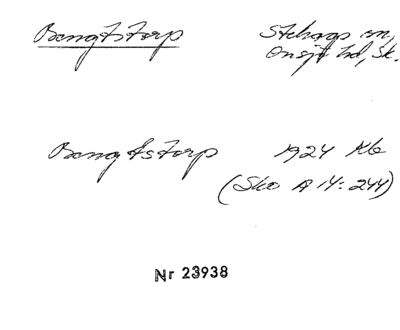 Bengtstorp Stehags sn,
Onsjö hd, Sk.
Bengtstorp 1924 Kb
(Sko A 14: 244)
Nr 23938